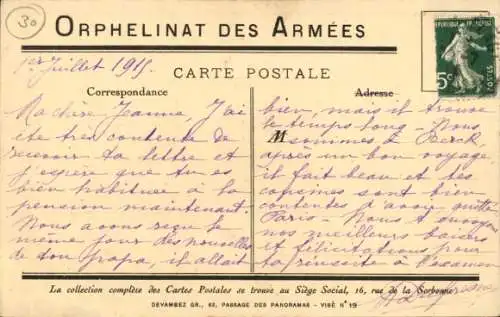 30
ORPHELINAT DES ARMÉES
1er Juillet 1915
CARTE POSTALE
5c
POSTES
Correspondance
Adresse
M
Ma chère Jeanne, J'ai
été très contente de
recevoir ta lettre et
j'espère que tu es
bien habituée à la
pension maintenant.
Nous avons reçu le
même jour des nouvelles
de ton papa, il allait
bien, mais il trouve
le temps long - Nous
sommes à Berck,
après un bon voyage
il fait beau et tes
cousines sont bien
contentes d'avoir quitté
Paris - Nous t'envoyons
nos meilleurs baisers
et félicitations pour
ta réussite à l'examen
La collection complète des Cartes Postales se trouve au Siège Social, 16, rue de la Sorbonne
DEVAMBEZ GR., 63, PASSAGE DES PANORAMAS - VISÉ N° 19